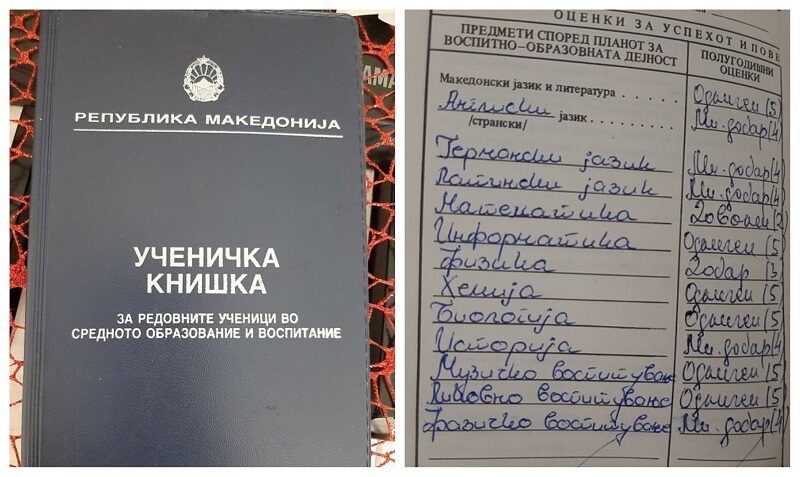 РЕПУБЛИКА МАКЕДОНИЈА
УЧЕНИЧКА
КНИШКА
ЗА РЕДОВНИТЕ УЧЕНИЦИ ВО
СРЕДНОТО ОБРАЗОВАНИЕ И ВОСПИТАНИЕ
ОЦЕНКИ ЗА УСПЕХОТ И ПОВЕ
ПРЕДМЕТИ СПОРЕД ПЛАНОТ ЗА
ВОСПИТНО–ОБРАЗОВНАТА ДЕЈНОСТ
ПОЛУГОДИШНИ
ОЦЕНКИ
Македонски јазик и литература . . . . . . Одличен (5
Англиски јазик . . . . . . . . Мн. добар (4
/странски/
Германски јазик Мн. добар (4
Латински јазик Мн. добар (4
Математика Доволен (2)
Информатика Одличен (5
Физика Добар (3
Хемија Одличен (5)
Биологија Одличен (5)
Историја Мн. добар (4
Музичко воспитување Одличен (5)
Ликовно воспитување Одличен (5)
Физичко воспитување Мн. добар (4)